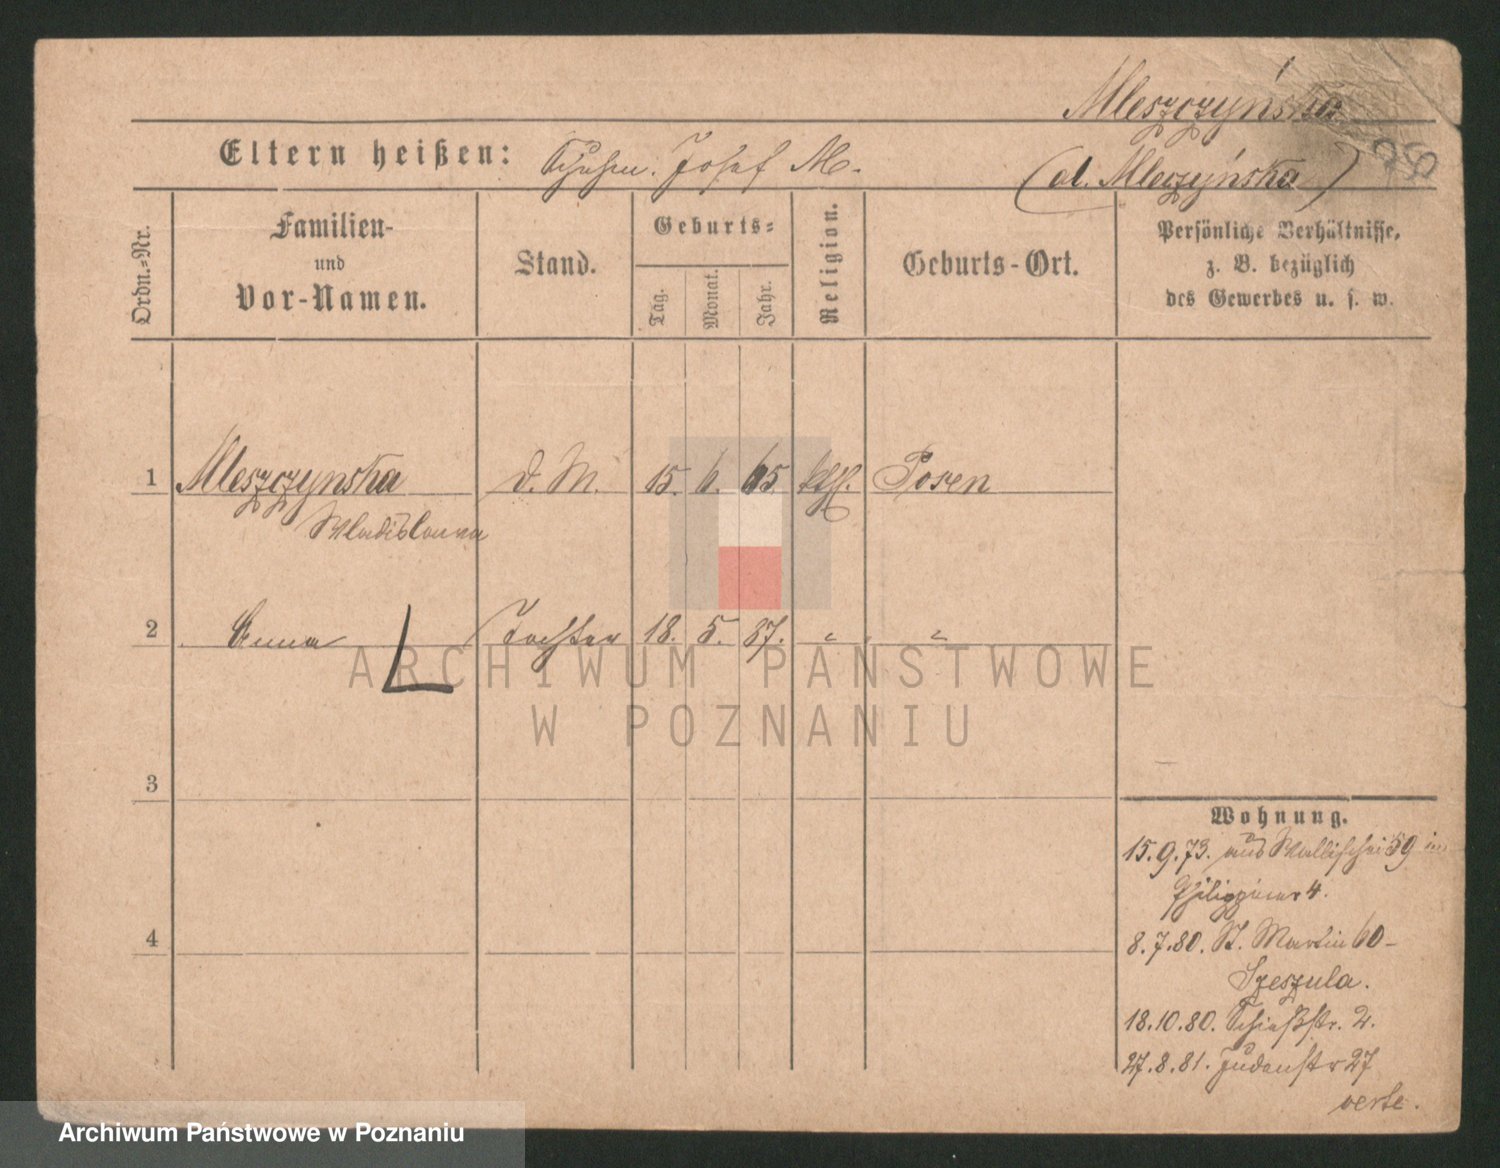 Mleszczyńska
Eltern heißen: Schuhm. Josef M.
(al. Mleczyńska)
Ordn.-Nr.
Familien-
und
Vor-Namen.
Stand.
Geburts-
Tag.
Monat.
Jahr.
Religion.
Geburts-Ort.
Persönliche Verhältnisse,
z. B. bezüglich
des Gewerbes u. s. w.
1 Mleszczynska d. M. 15. 6. 65 kth. Posen
Wladislawa
2 Anna Tochter 18. 5. 87. " "
3
4
Wohnung.
15.9.73. aus Wallischei 59 in
Philippiner 4.
8.7.80. St. Martin 60-
Szeszula.
18.10.80. Schießstr. 2.
27.8.81. Judenstr 27
verte.
ARCHIWUM PAŃSTWOWE
W POZNANIU
Archiwum Państwowe w Poznaniu